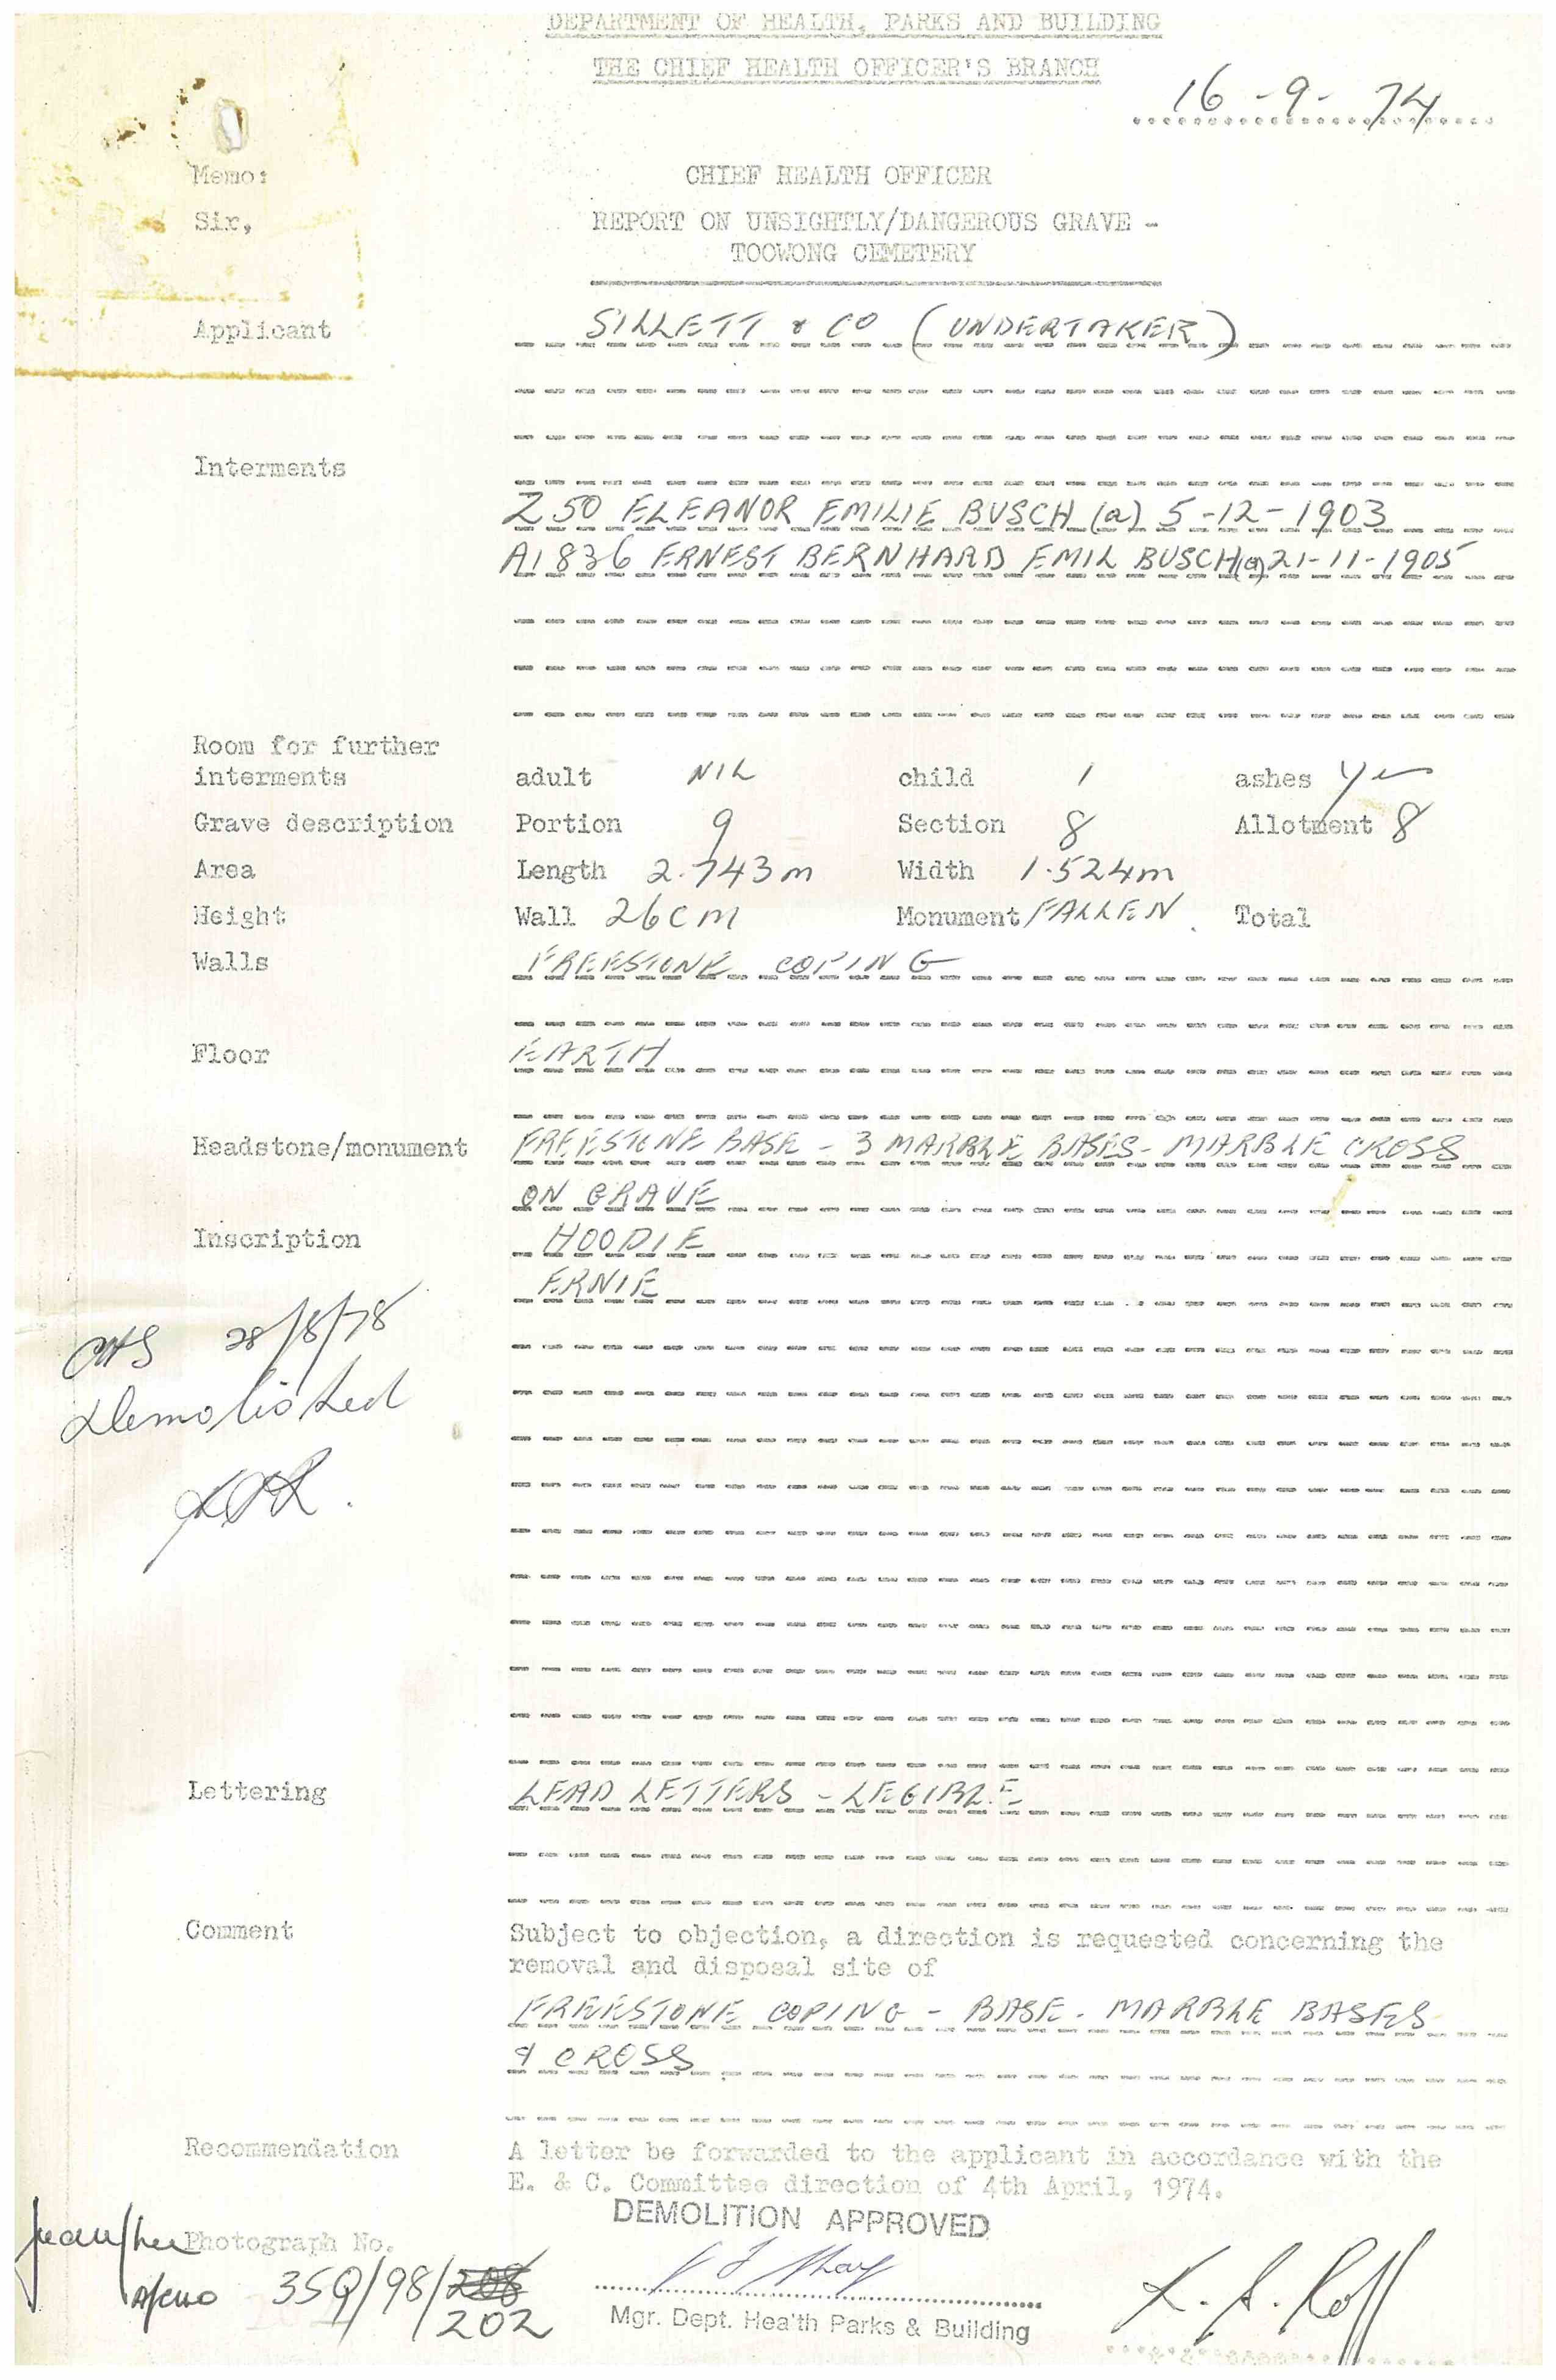 DEPARTMENT OF HEALTH, PARKS AND BUILDING
THE CHIEF HEALTH OFFICER'S BRANCH
16-9-74
Memo: CHIEF HEALTH OFFICER
Sir, REPORT ON UNSIGHTLY/DANGEROUS GRAVE -
TOOWONG CEMETERY
Applicant SILLETT & CO (UNDERTAKER)
Interments
Z 50 ELEANOR EMILIE BUSCH (a) 5-12-1903
A1836 ERNEST BERNHARD EMIL BUSCH (a) 21-11-1905
Room for further
interments adult NIL child 1 ashes Yes
Grave description Portion 9 Section 8 Allotment 8
Area Length 2.743m Width 1.524m
Height Wall 26cm Monument FALLEN. Total
Walls FREESTONE COPING
Floor EARTH
Headstone/monument FREESTONE BASE - 3 MARBLE BASES - MARBLE CROSS
ON GRAVE
Inscription HOODIE
ERNIE
28/8/78
Demolished
Lettering LEAD LETTERS - LEGIBLE
Comment Subject to objection, a direction is requested concerning the
removal and disposal site of
FREESTONE COPING - BASE - MARBLE BASES
& CROSS
Recommendation A letter be forwarded to the applicant in accordance with the
E. & C. Committee direction of 4th April, 1974.
DEMOLITION APPROVED
Photograph No.
35Q/98/208
202
Mgr. Dept. Health Parks & Building